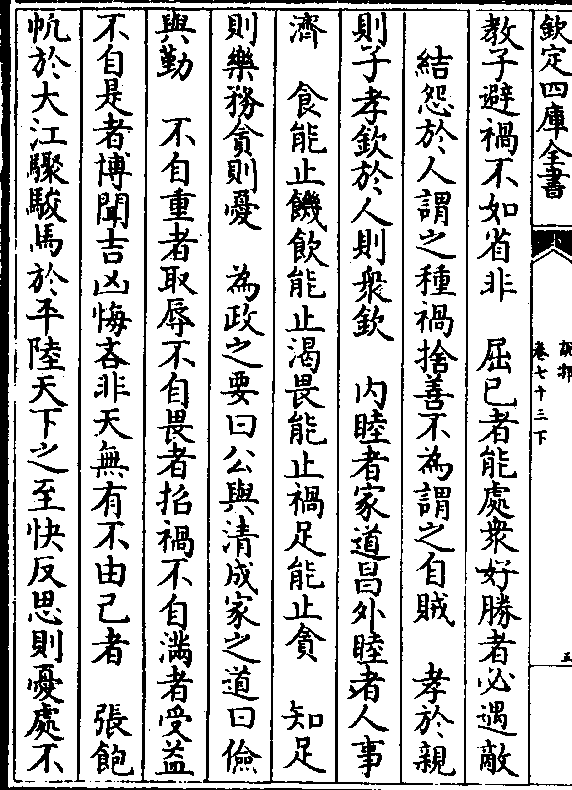 欽定四庫全書
說郛
卷七十三下
五
教子避禍不如省非　屈已者能處衆好勝者必遇敵
結怨於人謂之種禍捨善不為謂之自賊　孝於親
則子孝欽於人則衆欽　内睦者家道昌外睦者人事
濟　食能止饑飲能止渴畏能止禍足能止貪　知足
則樂務貪則憂　為政之要曰公與清成家之道曰儉
與勤　不自重者取辱不自畏者招禍不自滿者受益
不自是者博聞吉凶悔吝非天無有不由己者　張飽
帆於大江驟駿馬於平陸天下之至快反思則憂處不